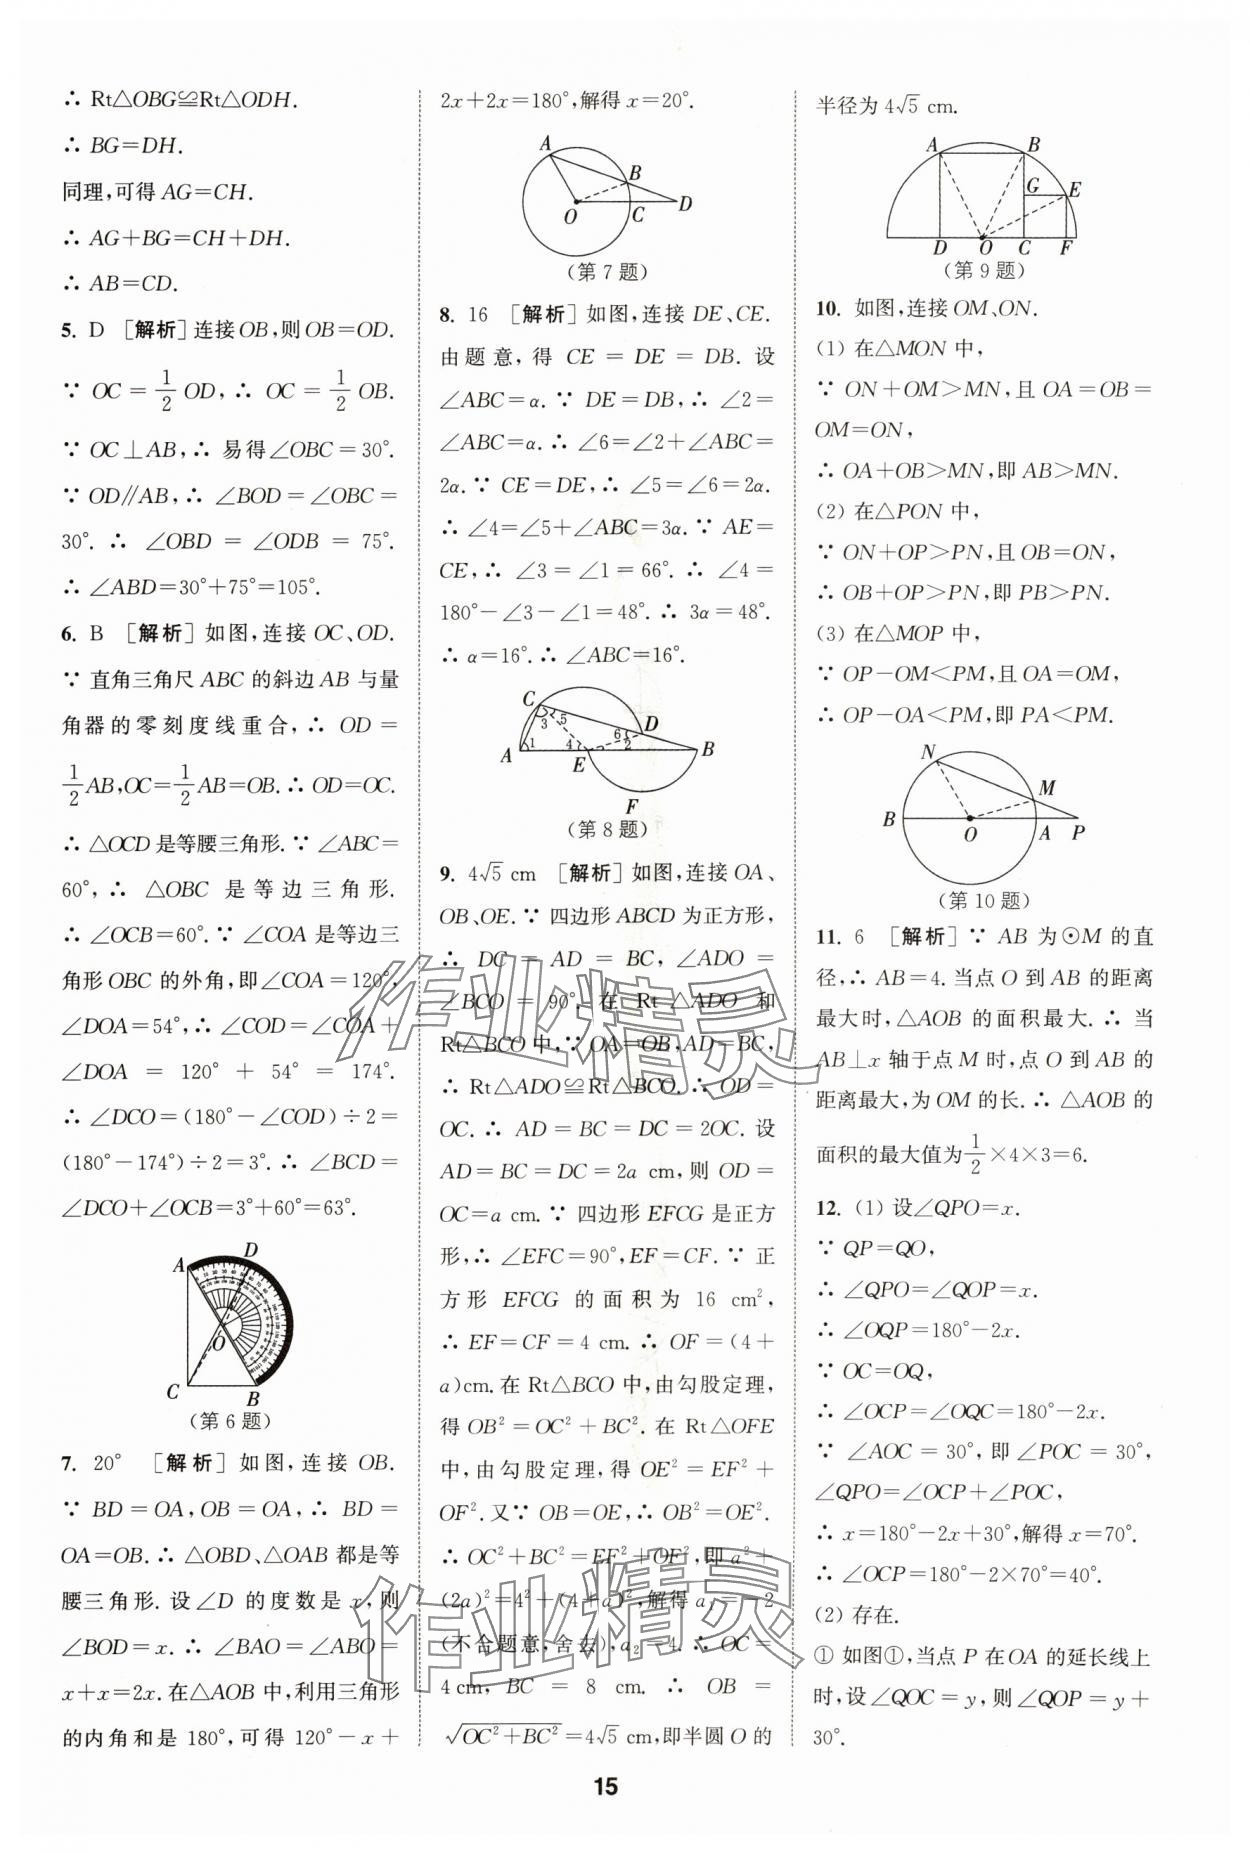 ∴ Rt△OBG≌Rt△ODH.
∴ BG=DH.
同理,可得 AG=CH.
∴ AG+BG=CH+DH.
∴ AB=CD.
5. D [解析]连接OB,则OB=OD.
∵ OC=1/2 OD,∴ OC=1/2 OB.
∵ OC⊥AB,∴ 易得∠OBC=30°.
∵ OD∥AB,∴ ∠BOD=∠OBC=
30°. ∴ ∠OBD = ∠ODB = 75°.
∴ ∠ABD=30°+75°=105°.
6. B [解析]如图,连接OC、OD.
∵ 直角三角尺ABC的斜边AB与量
角器的零刻度线重合,∴ OD=
1/2 AB,OC=1/2 AB=OB.∴ OD=OC.
∴ △OCD是等腰三角形.∵ ∠ABC=
60°,∴ △OBC 是等边三角形.
∴ ∠OCB=60°.∵ ∠COA是等边三
角形OBC的外角,即∠COA=120°,
∠DOA=54°,∴ ∠COD=∠COA+
∠DOA = 120° + 54° = 174°.
∴ ∠DCO=(180°-∠COD)÷2=
(180°-174°)÷2=3°.∴ ∠BCD=
∠DCO+∠OCB=3°+60°=63°.
A
D
O
C
B
(第6题)
7. 20° [解析]如图,连接 OB.
∵ BD=OA,OB=OA,∴ BD=
OA=OB.∴ △OBD、△OAB都是等
腰三角形.设∠D的度数是x,则
∠BOD=x.∴ ∠BAO=∠ABO=
x+x=2x.在△AOB中,利用三角形
的内角和是180°,可得120°-x+
2x+2x=180°,解得x=20°.
A
B
O
C
D
(第7题)
8. 16 [解析]如图,连接DE、CE.
由题意,得 CE=DE=DB.设
∠ABC=α.∵ DE=DB,∴ ∠2=
∠ABC=α.∴ ∠6=∠2+∠ABC=
2α.∵ CE=DE,∴ ∠5=∠6=2α.
∴ ∠4=∠5+∠ABC=3α.∵ AE=
CE,∴ ∠3=∠1=66°.∴ ∠4=
180°-∠3-∠1=48°.∴ 3α=48°.
∴ α=16°.∴ ∠ABC=16°.
C
3 5
D
6
1
4
2
A
E
B
F
(第8题)
9. 4√5 cm [解析]如图,连接OA、
OB、OE.∵ 四边形ABCD为正方形,
∴ DC = AD = BC,∠ADO =
∠BCO = 90°.在 Rt△ADO 和
Rt△BCO中,∵ OA=OB,AD=BC,
∴ Rt△ADO≌Rt△BCO.∴ OD=
OC.∴ AD=BC=DC=2OC.设
AD=BC=DC=2a cm,则OD=
OC=a cm.∵ 四边形EFCG是正方
形,∴ ∠EFC=90°,EF=CF.∵ 正
方形 EFCG 的面积为 16 cm²,
∴ EF=CF=4 cm.∴ OF=(4+
a)cm.在Rt△BCO中,由勾股定理,
得OB²=OC²+BC².在Rt△OFE
中,由勾股定理,得OE²=EF²+
OF².又∵ OB=OE,∴ OB²=OE².
∴ OC²+BC²=EF²+OF²,即a²+
(2a)²=4²+(4+a)²,解得a₁=-2
(不合题意,舍去),a₂=4.∴ OC=
4 cm,BC = 8 cm.∴ OB =
√(OC²+BC²)=4√5 cm,即半圆O的
半径为4√5 cm.
A
B
G
E
D
O
C
F
(第9题)
10. 如图,连接OM、ON.
(1) 在△MON中,
∵ ON+OM>MN,且OA=OB=
OM=ON,
∴ OA+OB>MN,即AB>MN.
(2) 在△PON中,
∵ ON+OP>PN,且OB=ON,
∴ OB+OP>PN,即PB>PN.
(3) 在△MOP中,
∵ OP-OM<PM,且OA=OM,
∴ OP-OA<PM,即PA<PM.
N
M
B
O
A
P
(第10题)
11. 6 [解析]∵ AB为⊙M的直
径,∴ AB=4.当点O到AB的距离
最大时,△AOB的面积最大.∴ 当
AB⊥x轴于点M时,点O到AB的
距离最大,为OM的长.∴ △AOB的
面积的最大值为1/2×4×3=6.
12. (1) 设∠QPO=x.
∵ QP=QO,
∴ ∠QPO=∠QOP=x.
∴ ∠OQP=180°-2x.
∵ OC=OQ,
∴ ∠OCP=∠OQC=180°-2x.
∵ ∠AOC=30°,即∠POC=30°,
∠QPO=∠OCP+∠POC,
∴ x=180°-2x+30°,解得x=70°.
∴ ∠OCP=180°-2×70°=40°.
(2) 存在.
① 如图①,当点P在OA的延长线上
时,设∠QOC=y,则∠QOP=y+
30°.
15
作业精灵
作业精灵